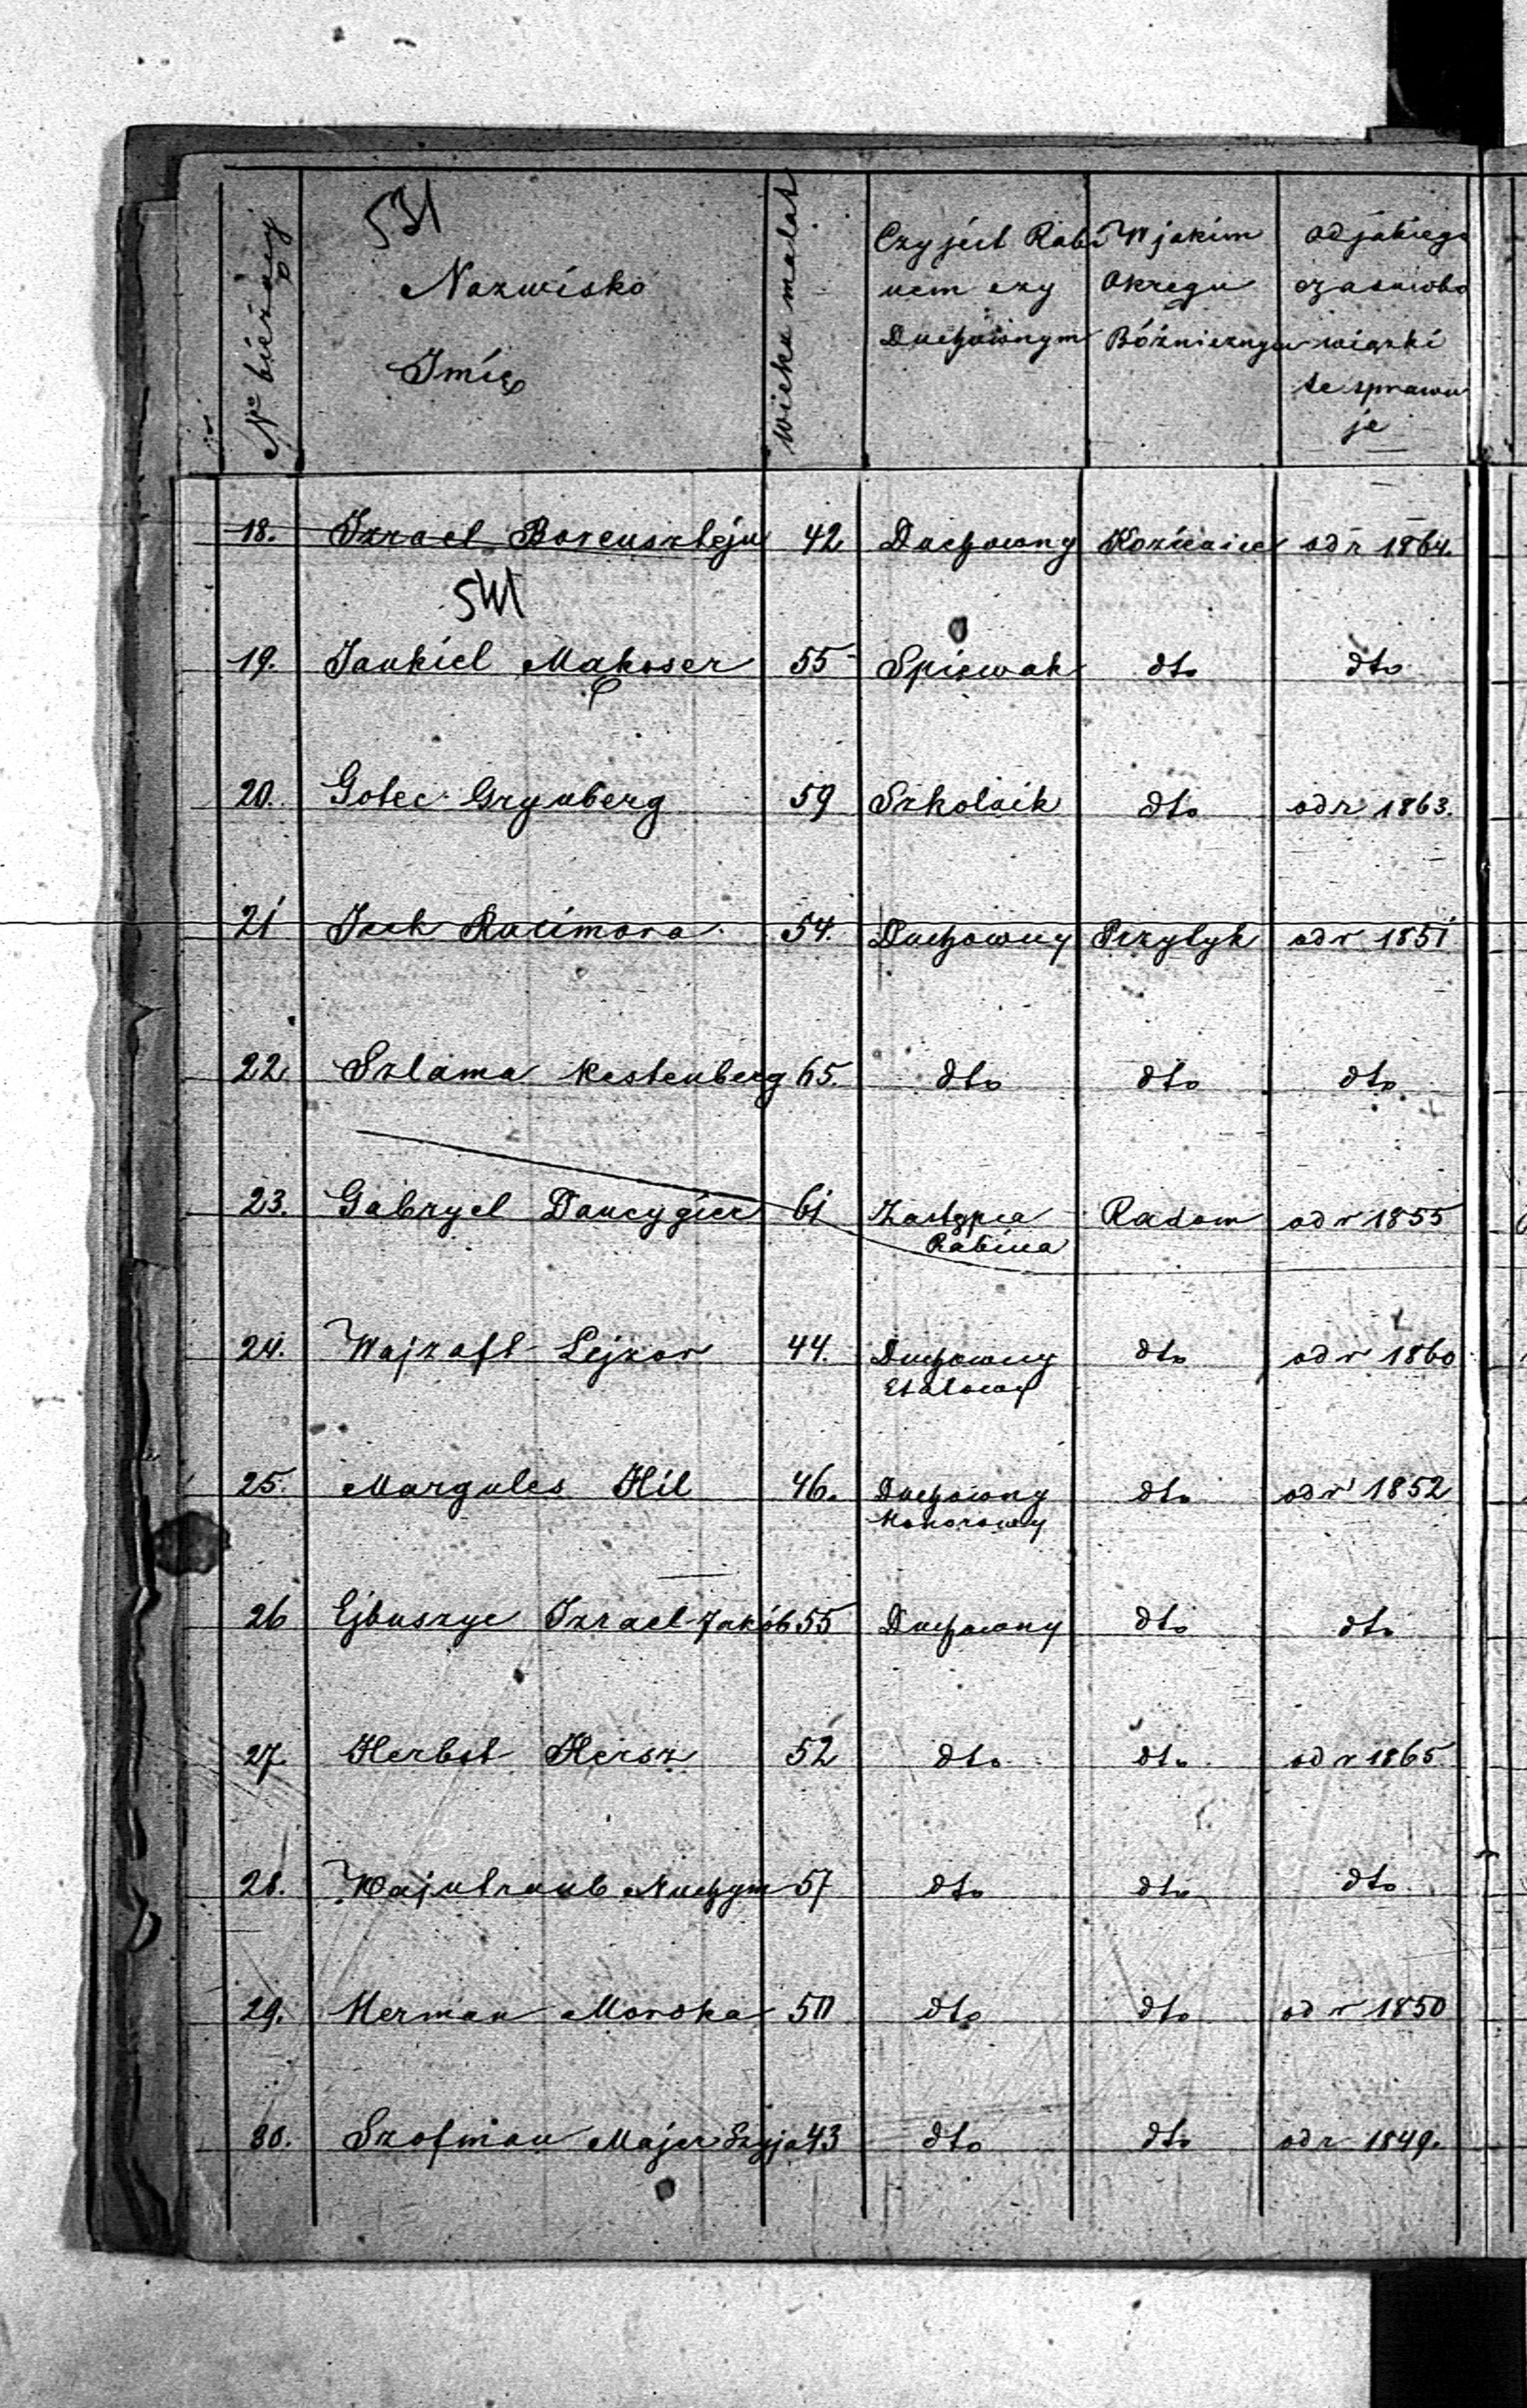 531
Nº bieżący
Nazwisko
Imię
wieku ma lat
Czy jest Rabi
nem czy
Duchownym
W jakim
Okręgu
Bóżniczym
od jakiego
czasu obo
wiązki
te sprawu
je
18. Izrael Borensztejn 42 Duchowny Kozienice od r 1864.
541
19. Jankiel Makoser 55 Spiewak dto dto
20. Gotec Grynberg 59 Szkolnik dto od r 1863.
21 Icek 54. Duchowny Przytyk od r 1851
22 Szlama Kestenberg 65. dto dto dto
23. Gabryel Dancygier 61 Zastępca Radom od r 1855
Rabina
24. Wajzaft Lejzor 44. Duchowny dto od r 1860
Etatowy
25. Margules Hil 46. Duchowny dto od r 1852
Honorowy
26 Ejbuszyc Izrael Jakób 55 Duchowny dto dto
27. Herbst Hersz 52 dto dto od r 1865
28. Wajntraub Nuchym 57 dto dto dto
29. Herman Moroka 50 dto dto od r 1850
30. Szofman Majer Szyja 43 dto dto od r 1849.